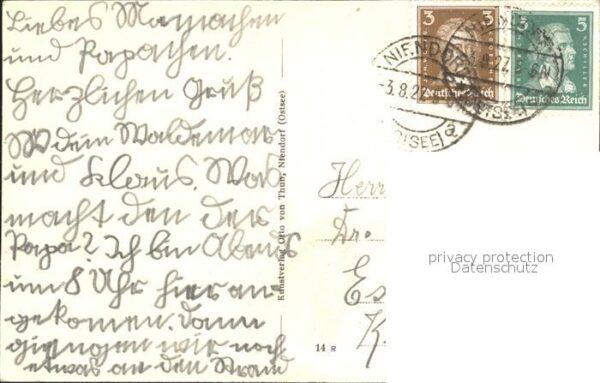 Liebes Mamachen
und Papachen.
Herzlichen Gruß
dein Waldemar
und Klaus. Was
macht den der
Papa? Ich bin Abends
um 8 Uhr hier an
gekomen. Dann
giengen wir noch
etwas an den Strand
Kunstverlag Otto von Thun, Niendorf (Ostsee)
14 R
Herr
Dr.
Es
K
3 3
Deutsches Reich
5 5
F.v.SCHILLER
Deutsches Reich
NIENDORF
3.8.27
(OSTSEE)
a
privacy protection
Datenschutz